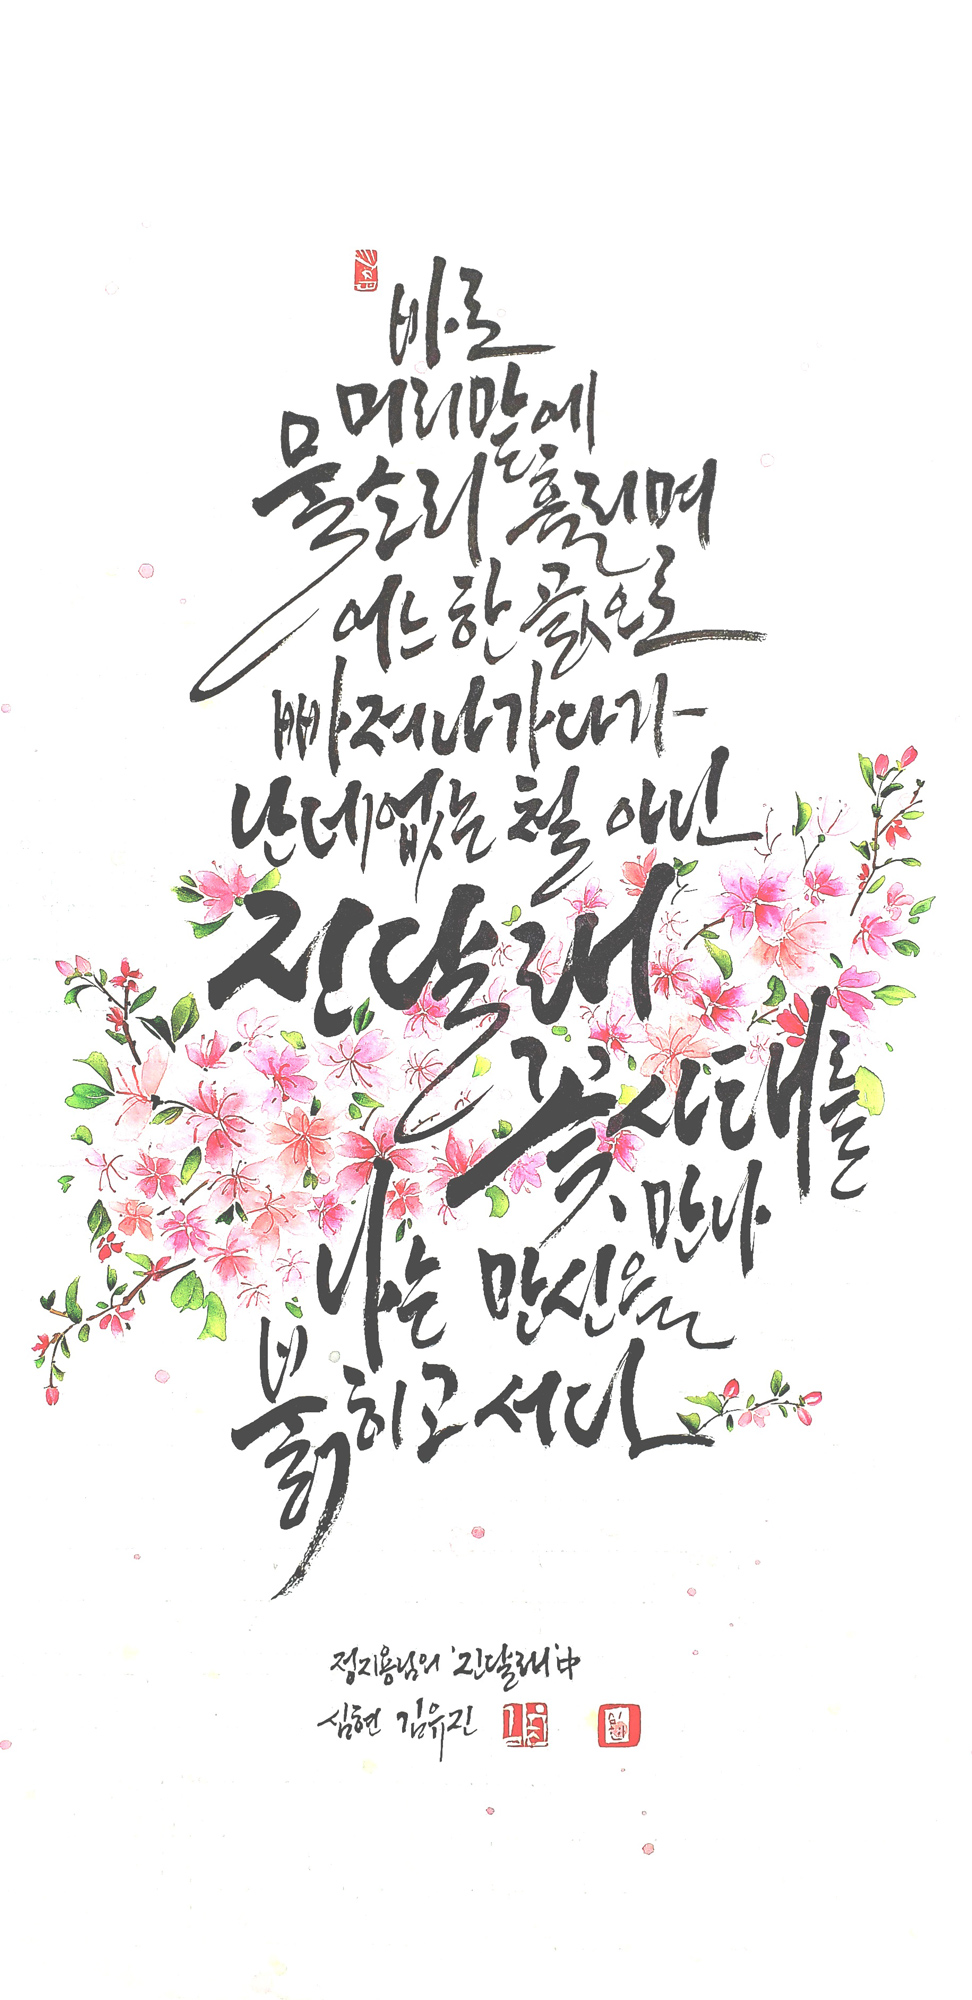 바로
머리맡에
물소리 흘리며
어느 한 곬으로
빠져나가다가
난데없는 철 아닌
진달래
꽃사태를
만나
나는 만신을
붉히고 서다
정지용님의 '진달래' 中
심현 김유진